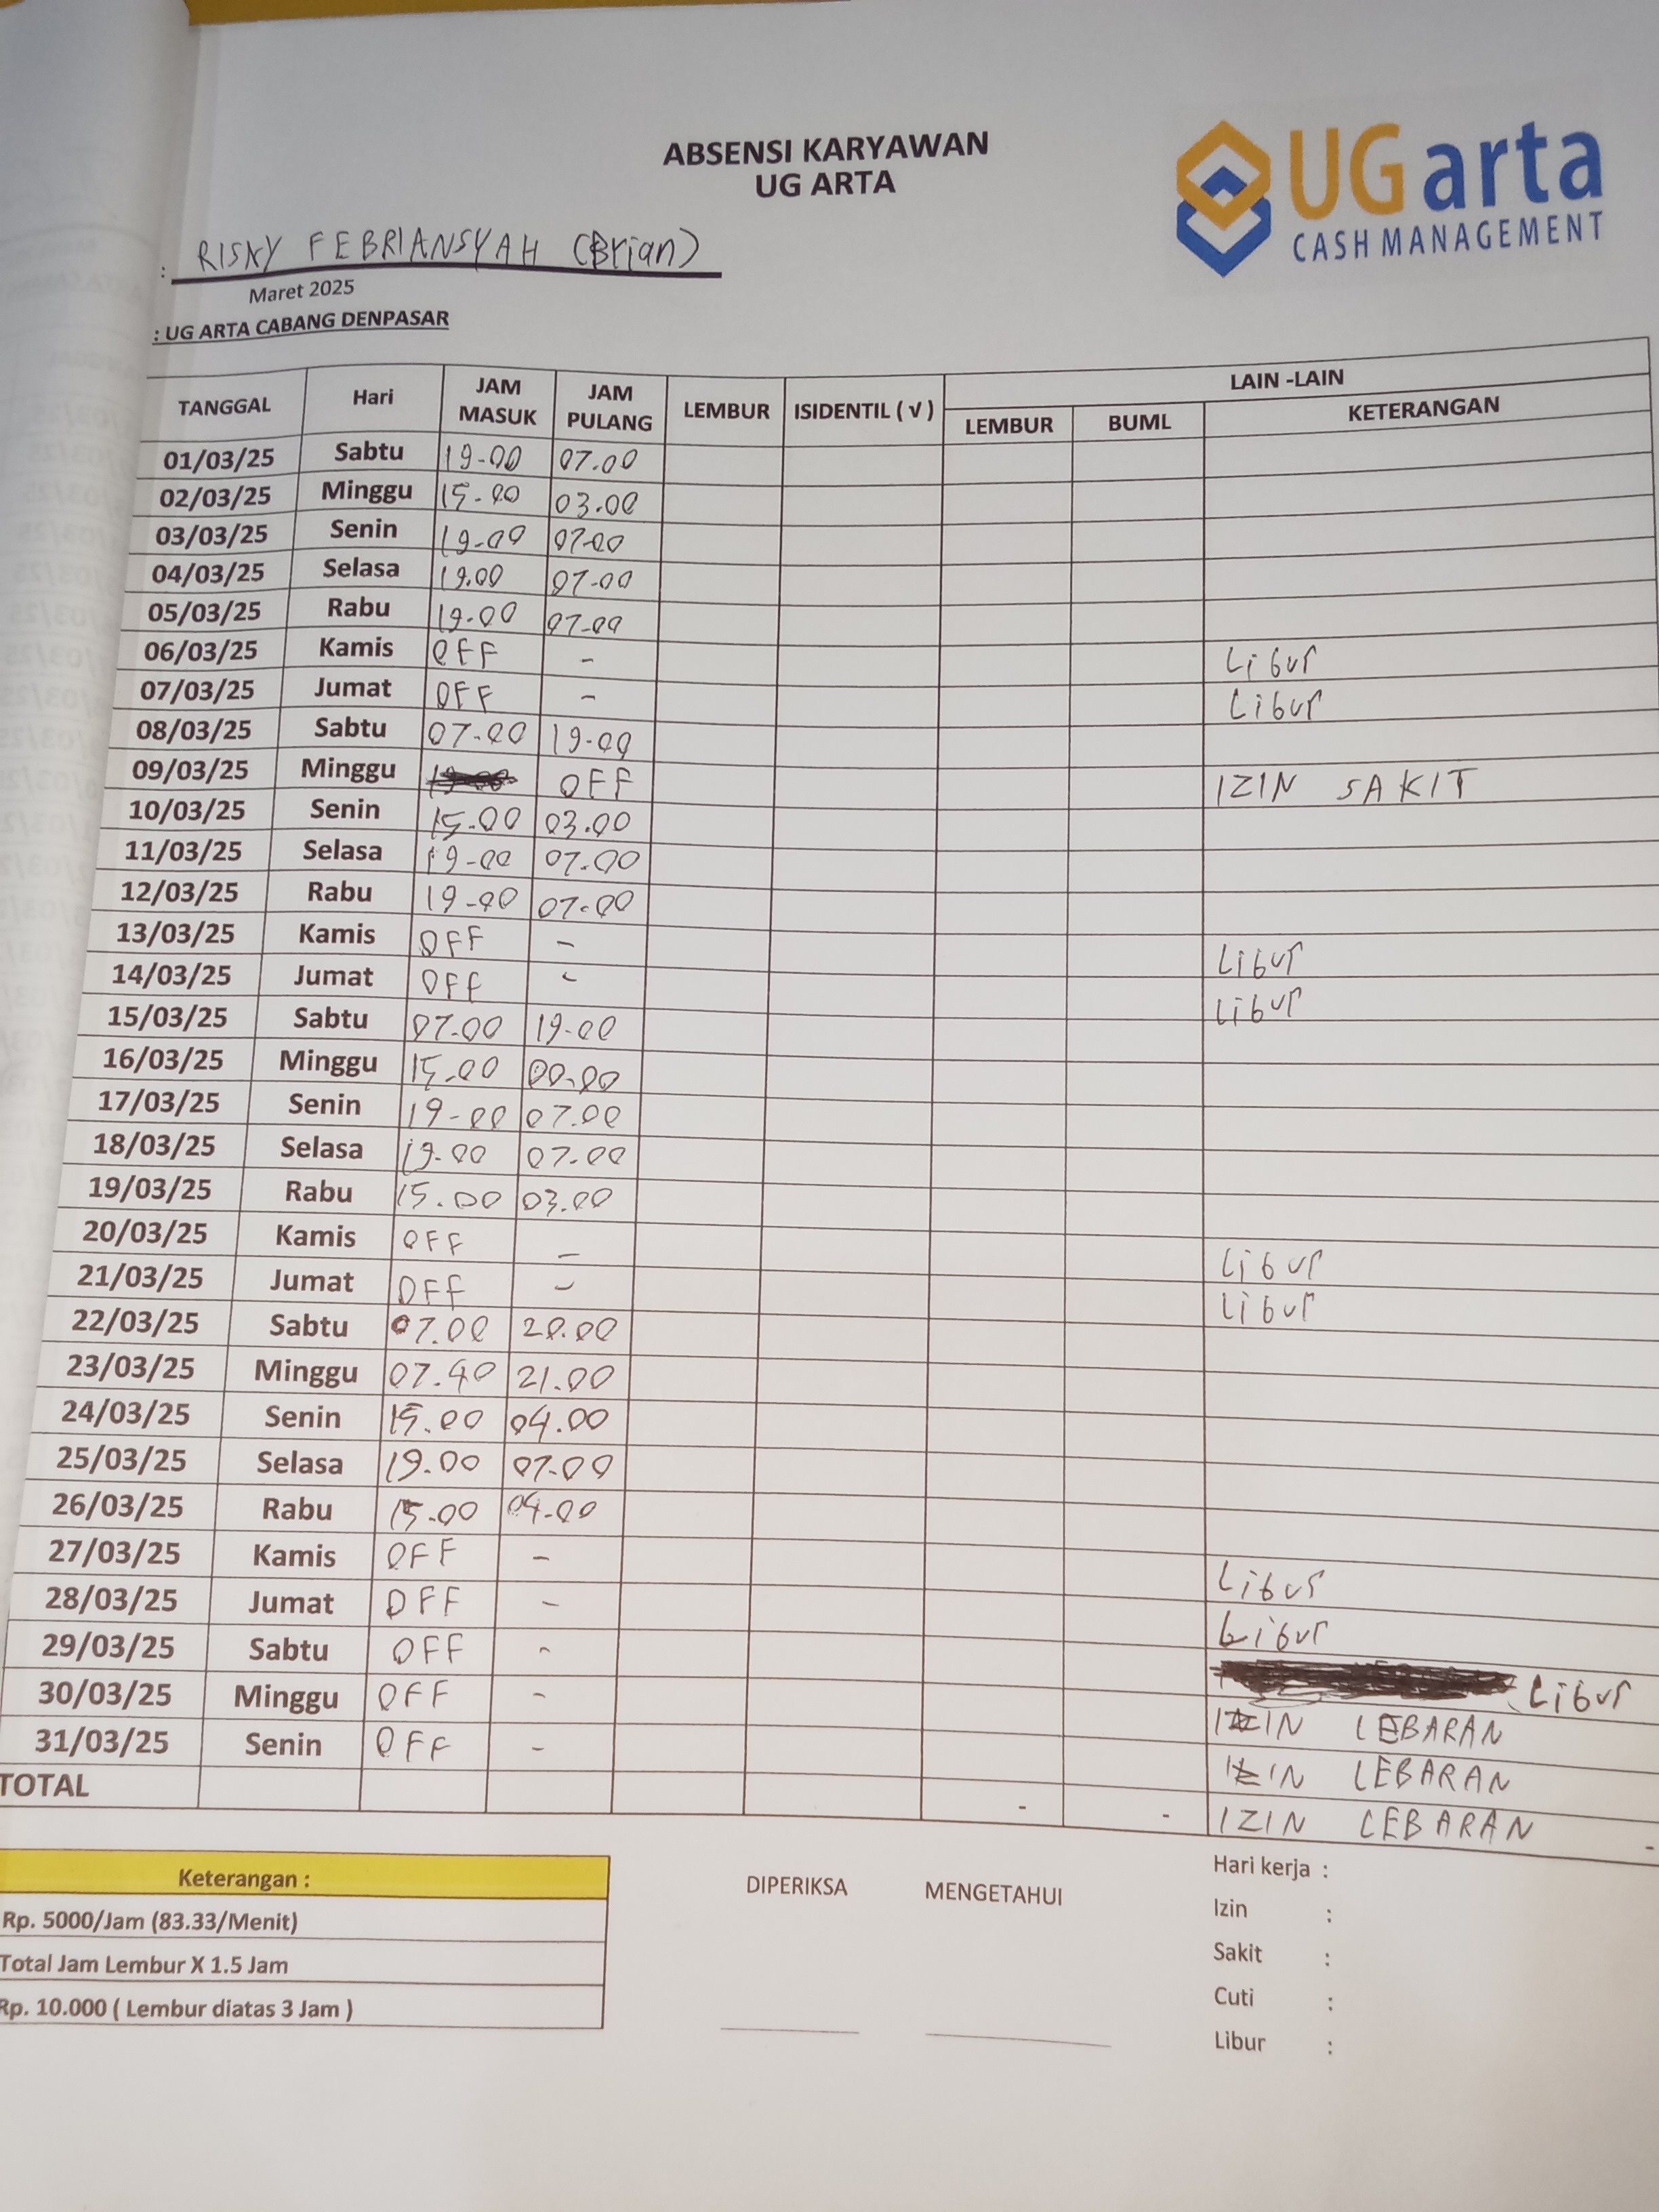 ABSENSI KARYAWAN
UG ARTA
UGarta
CASH MANAGEMENT
: RISKY FEBRIANSYAH (Brian)
Maret 2025
: UG ARTA CABANG DENPASAR
TANGGAL Hari JAM MASUK JAM PULANG LEMBUR ISIDENTIL ( √ ) LAIN -LAIN
LEMBUR BUML KETERANGAN
01/03/25 Sabtu 19-00 07.00
02/03/25 Minggu 15-00 03.00
03/03/25 Senin 19-00 07-00
04/03/25 Selasa 19.00 07-00
05/03/25 Rabu 19-00 07-00
06/03/25 Kamis OFF - Libur
07/03/25 Jumat OFF - Libur
08/03/25 Sabtu 07-00 19-00
09/03/25 Minggu OFF IZIN SAKIT
10/03/25 Senin 15.00 03.00
11/03/25 Selasa 19-00 07.00
12/03/25 Rabu 19-00 07-00
13/03/25 Kamis OFF - Libur
14/03/25 Jumat OFF - Libur
15/03/25 Sabtu 07-00 19-00
16/03/25 Minggu 15-00 00-00
17/03/25 Senin 19-00 07.00
18/03/25 Selasa 19-00 07-00
19/03/25 Rabu 15.00 03.00
20/03/25 Kamis OFF - Libur
21/03/25 Jumat OFF - Libur
22/03/25 Sabtu 07.00 20.00
23/03/25 Minggu 07.40 21.00
24/03/25 Senin 15.00 04.00
25/03/25 Selasa 19.00 07-00
26/03/25 Rabu 15-00 04-00
27/03/25 Kamis OFF - Libur
28/03/25 Jumat OFF - Libur
29/03/25 Sabtu OFF - Libur
30/03/25 Minggu OFF - IZIN LEBARAN
31/03/25 Senin OFF - IZIN LEBARAN
TOTAL - - IZIN LEBARAN -
Keterangan :
Rp. 5000/Jam (83.33/Menit)
Total Jam Lembur X 1.5 Jam
Rp. 10.000 ( Lembur diatas 3 Jam )
DIPERIKSA MENGETAHUI
Hari kerja :
Izin :
Sakit :
Cuti :
Libur :